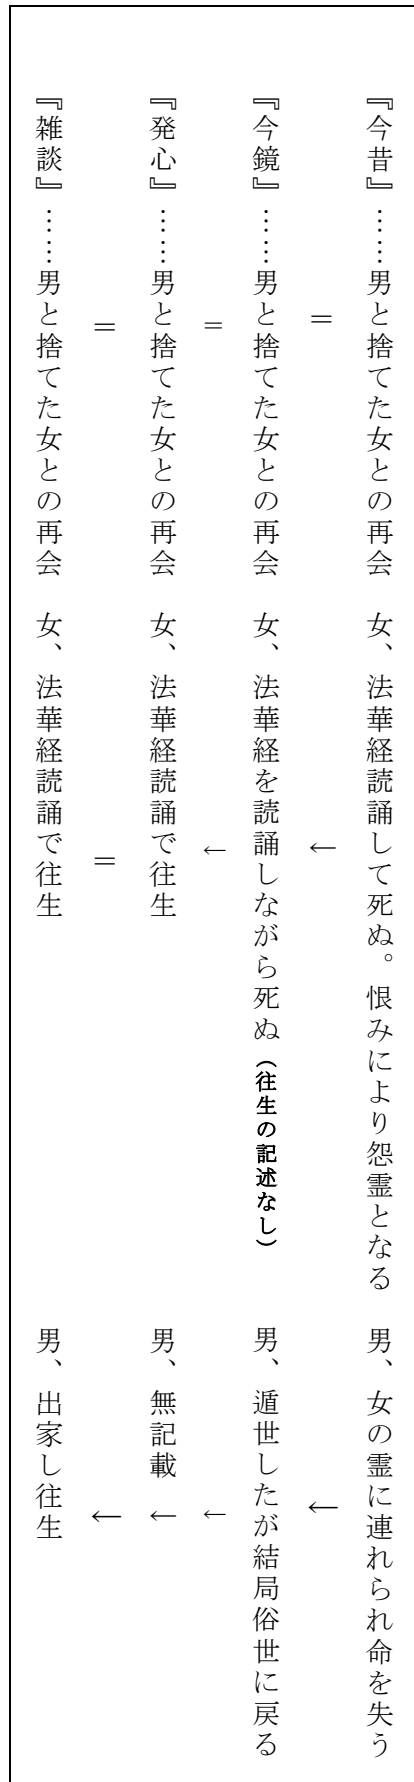 『今昔』……男と捨てた女との再会　女、法華経読誦して死ぬ。恨みにより怨霊となる　男、女の霊に連れられ命を失う
＝　←　←
『今鏡』……男と捨てた女との再会　女、法華経を読誦しながら死ぬ（往生の記述なし）　男、遁世したが結局俗世に戻る
＝　←　←
『発心』……男と捨てた女との再会　女、法華経読誦で往生　男、無記載　←
＝　＝　←
『雑談』……男と捨てた女との再会　女、法華経読誦で往生　男、出家し往生